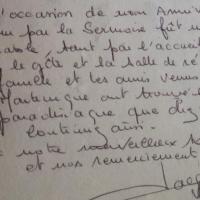 l'occasion de mon Anniv
par la Semaine fit
tant par l'accueil
le gîte et la salle de ré
famille et les amis venus
Martinique ont trouvé
paradisiaque que di
continu ainsi.
notre merveilleux
et nos remerciement